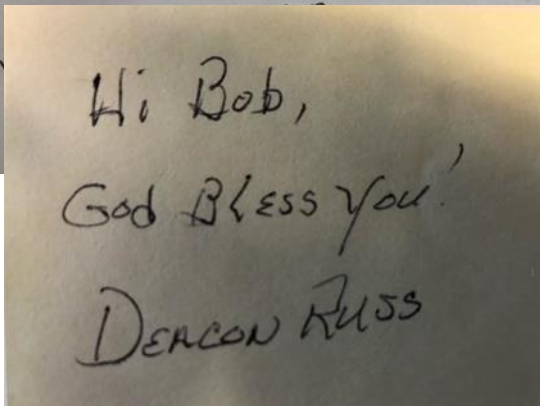 Hi Bob,
God Bless You!
Deacon Russ